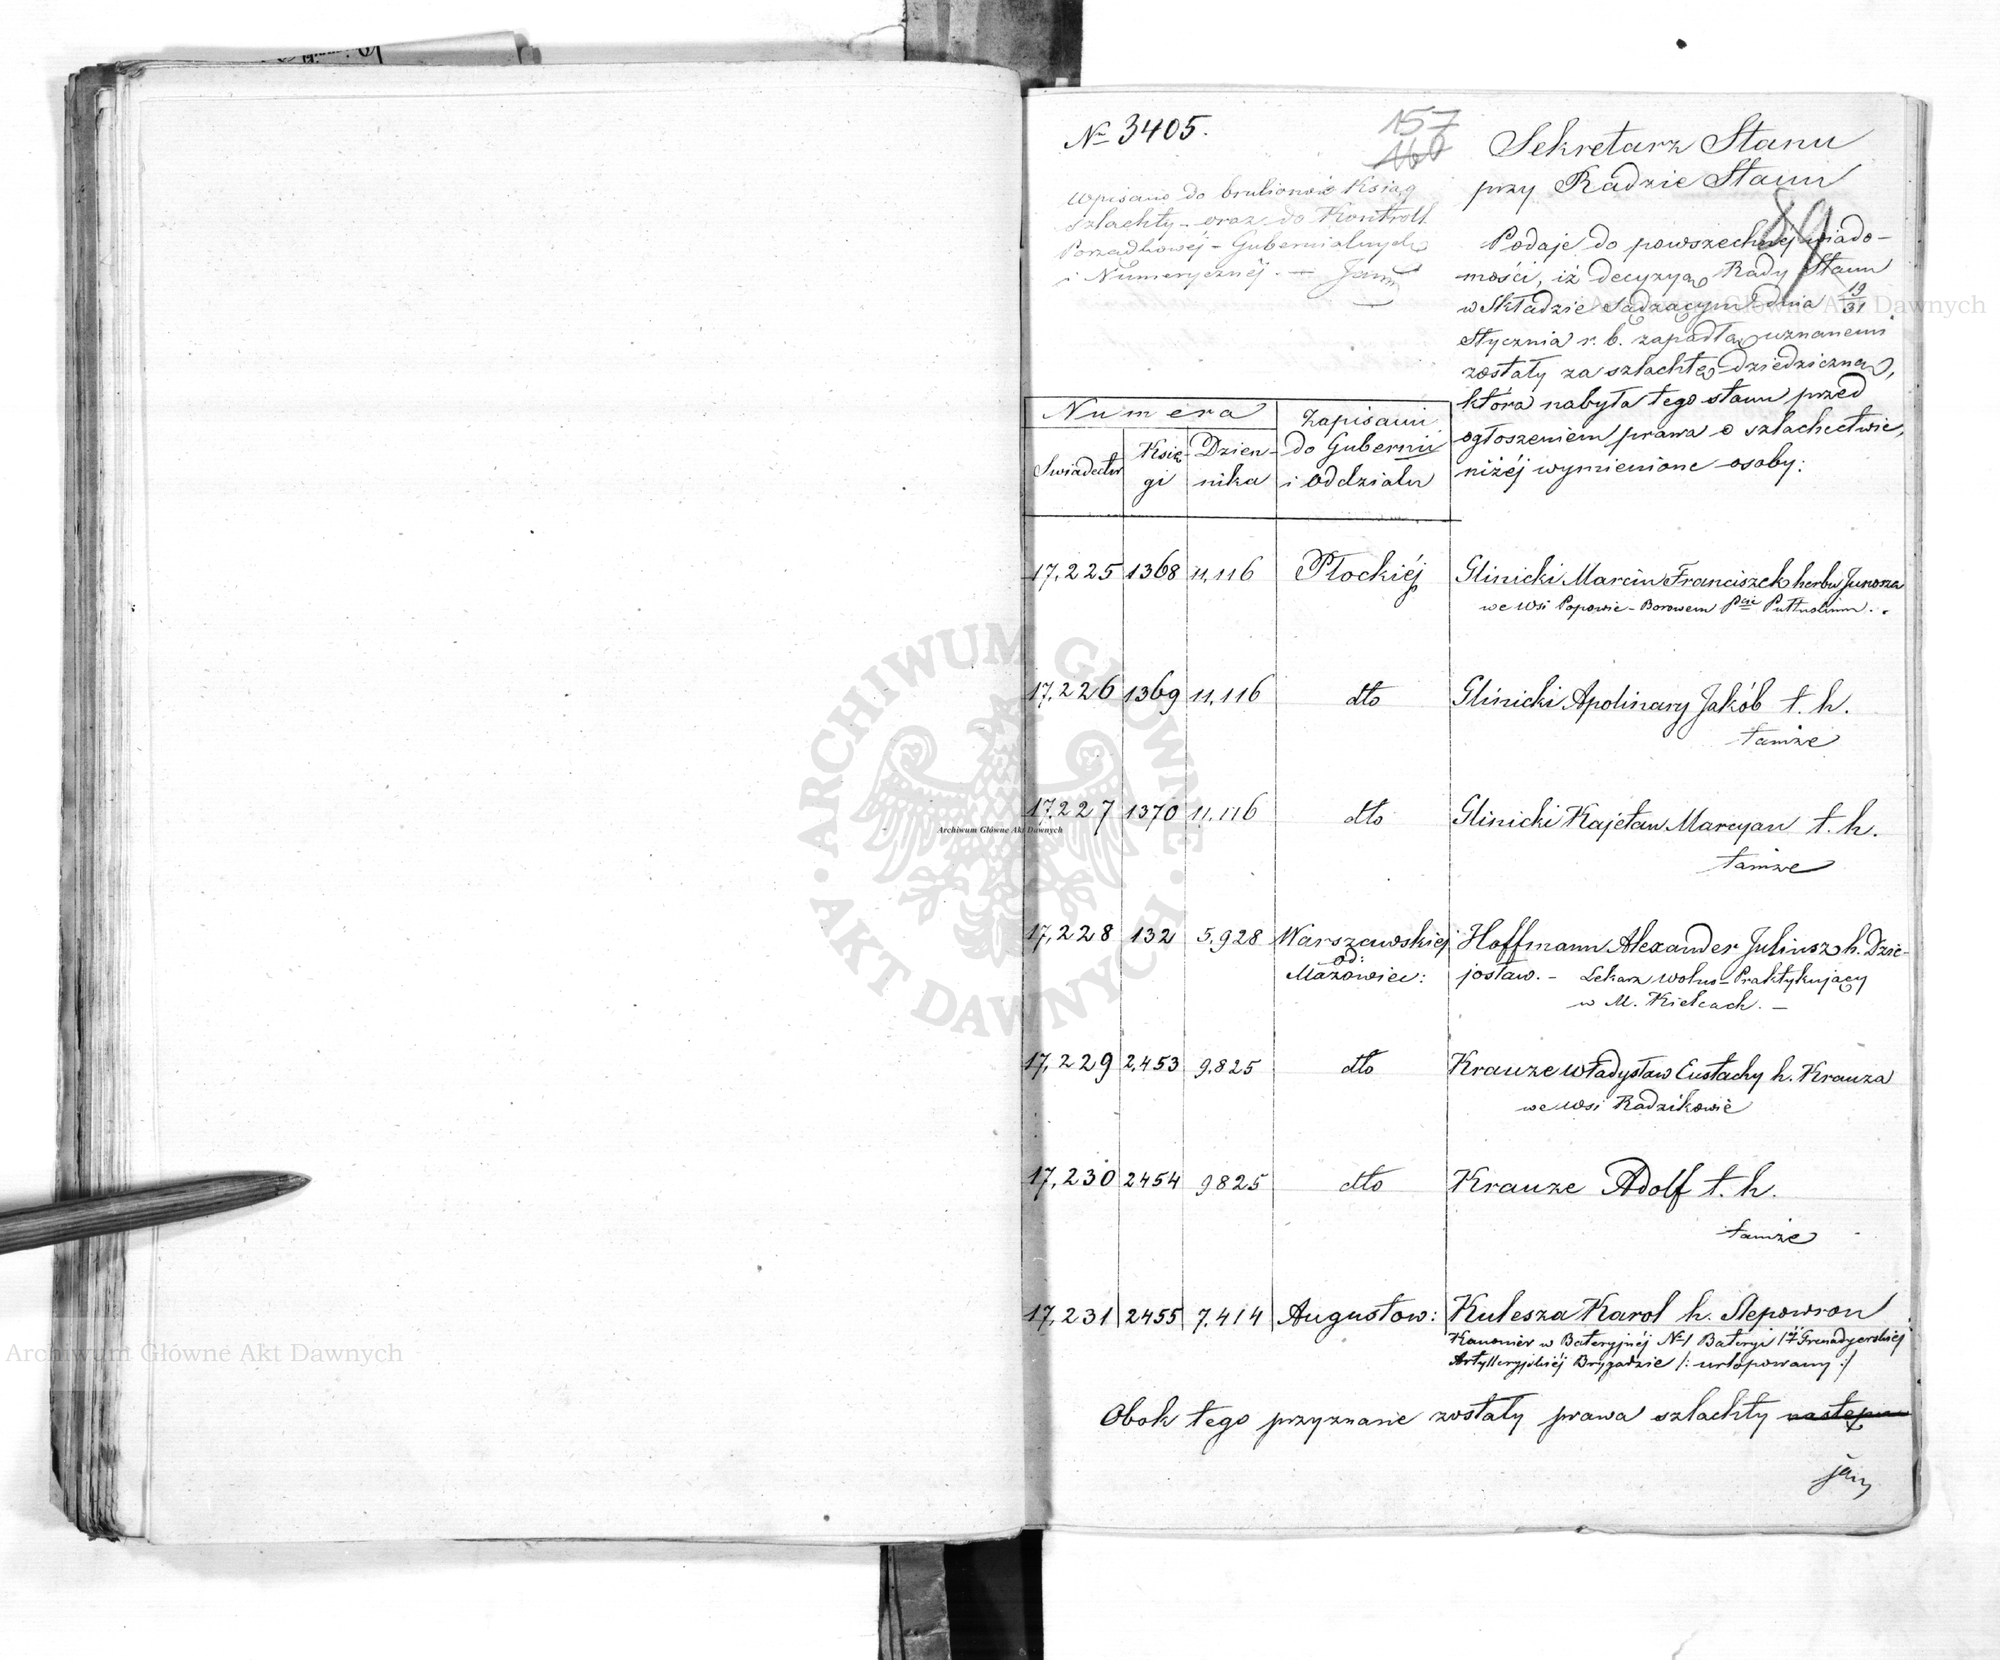 № 3405.
157
160
Wpisano do brulionów Ksiąg
szlachty - oraz do Kontroll
Porządkowéj - Gubernialnych
i Numerycznéj. —
Sekretarz Stanu
przy Radzie Stanu
89
Podaje do powszechnéj wiado-
mości, iż decyzyą Rady Stanu
w Składzie Sądzącym dnia 19/31
Stycznia r. b. zapadłą uznanemi
zostały za szlachtę dziedziczną,
która nabyła tego stanu przed
ogłoszeniem prawa o szlachectwie,
niżéj wymienione osoby:
Numera
Świadectw
Księ-
gi
Dzien-
nika
Zapisani
do Gubernii
i Oddziału
17,225 1368 11,116 Płockiéj Glinicki Marcin Franciszek herbu Junosza
we Wsi Popowie-Borowem Pcie Pułtuskim.
17,226 1369 11,116 dto Glinicki Apolinary Jakób t. h.
tamże
17,227 1370 11,116 dto Glinicki Kajetan Marcyan t. h.
tamże
17,228 132 5,928 Warszawskiéj Hoffmann Alexander Juliusz h. Dzie-
od:
Mazowiec: josław. - Lekarz Wolno-Praktykujący
w M. Kielcach. —
17,229 2,453 9,825 dto Krauze Władysław Eustachy h. Krauza
we Wsi Radzikowie
17,230 2454 9825 dto Krauze Adolf t. h.
tamże
17,231 2455 7,414 Augustow: Kulesza Karol h. Ślepowron
Kanonier w Bateryjnéj № 1 Bateryi Grenadyerskiéj
Artylleryjskiéj Brygadzie /: urlopowany :/
Obok tego przyznane zostały prawa szlachty następu
jąc
Archiwum Główne Akt Dawnych
ARCHIWUM GŁÓWNE · AKT DAWNYCH ·
Archiwum Główne Akt Dawnych
Archiwum Główne Akt Dawnych